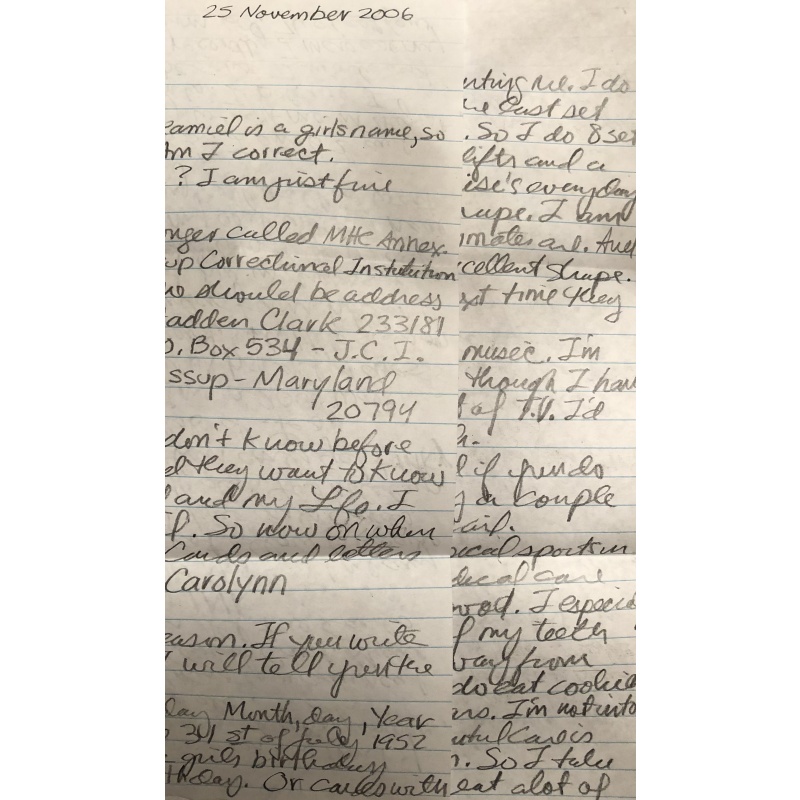 25 November 2006
is a girls name, so
I correct.
? I am just fine
called MHC Annex.
Correctional Institution
should be address
adden Clark 233181
. Box 534 - J.C.I.
ssup - Maryland
20794
don't know before
they want to know
and my Life. I
. So now on when
Cards and letters
Carolynn
eason. If you write
I will tell you the
day Month, day, Year
31 st of July 1952
girls birthday
thday. Or cards with
me. I do
last set
. So I do 8 set
lifts and a
ise's everyday
ape. I am
mates are. And
cellent shape.
time they
music. I'm
though I hav
of T.V. I'd
if you do
a couple
ical sports
ical care
. I especi
my teeth
away from
do eat cookie
. I'm not into
care is
. So I take
eat alot of